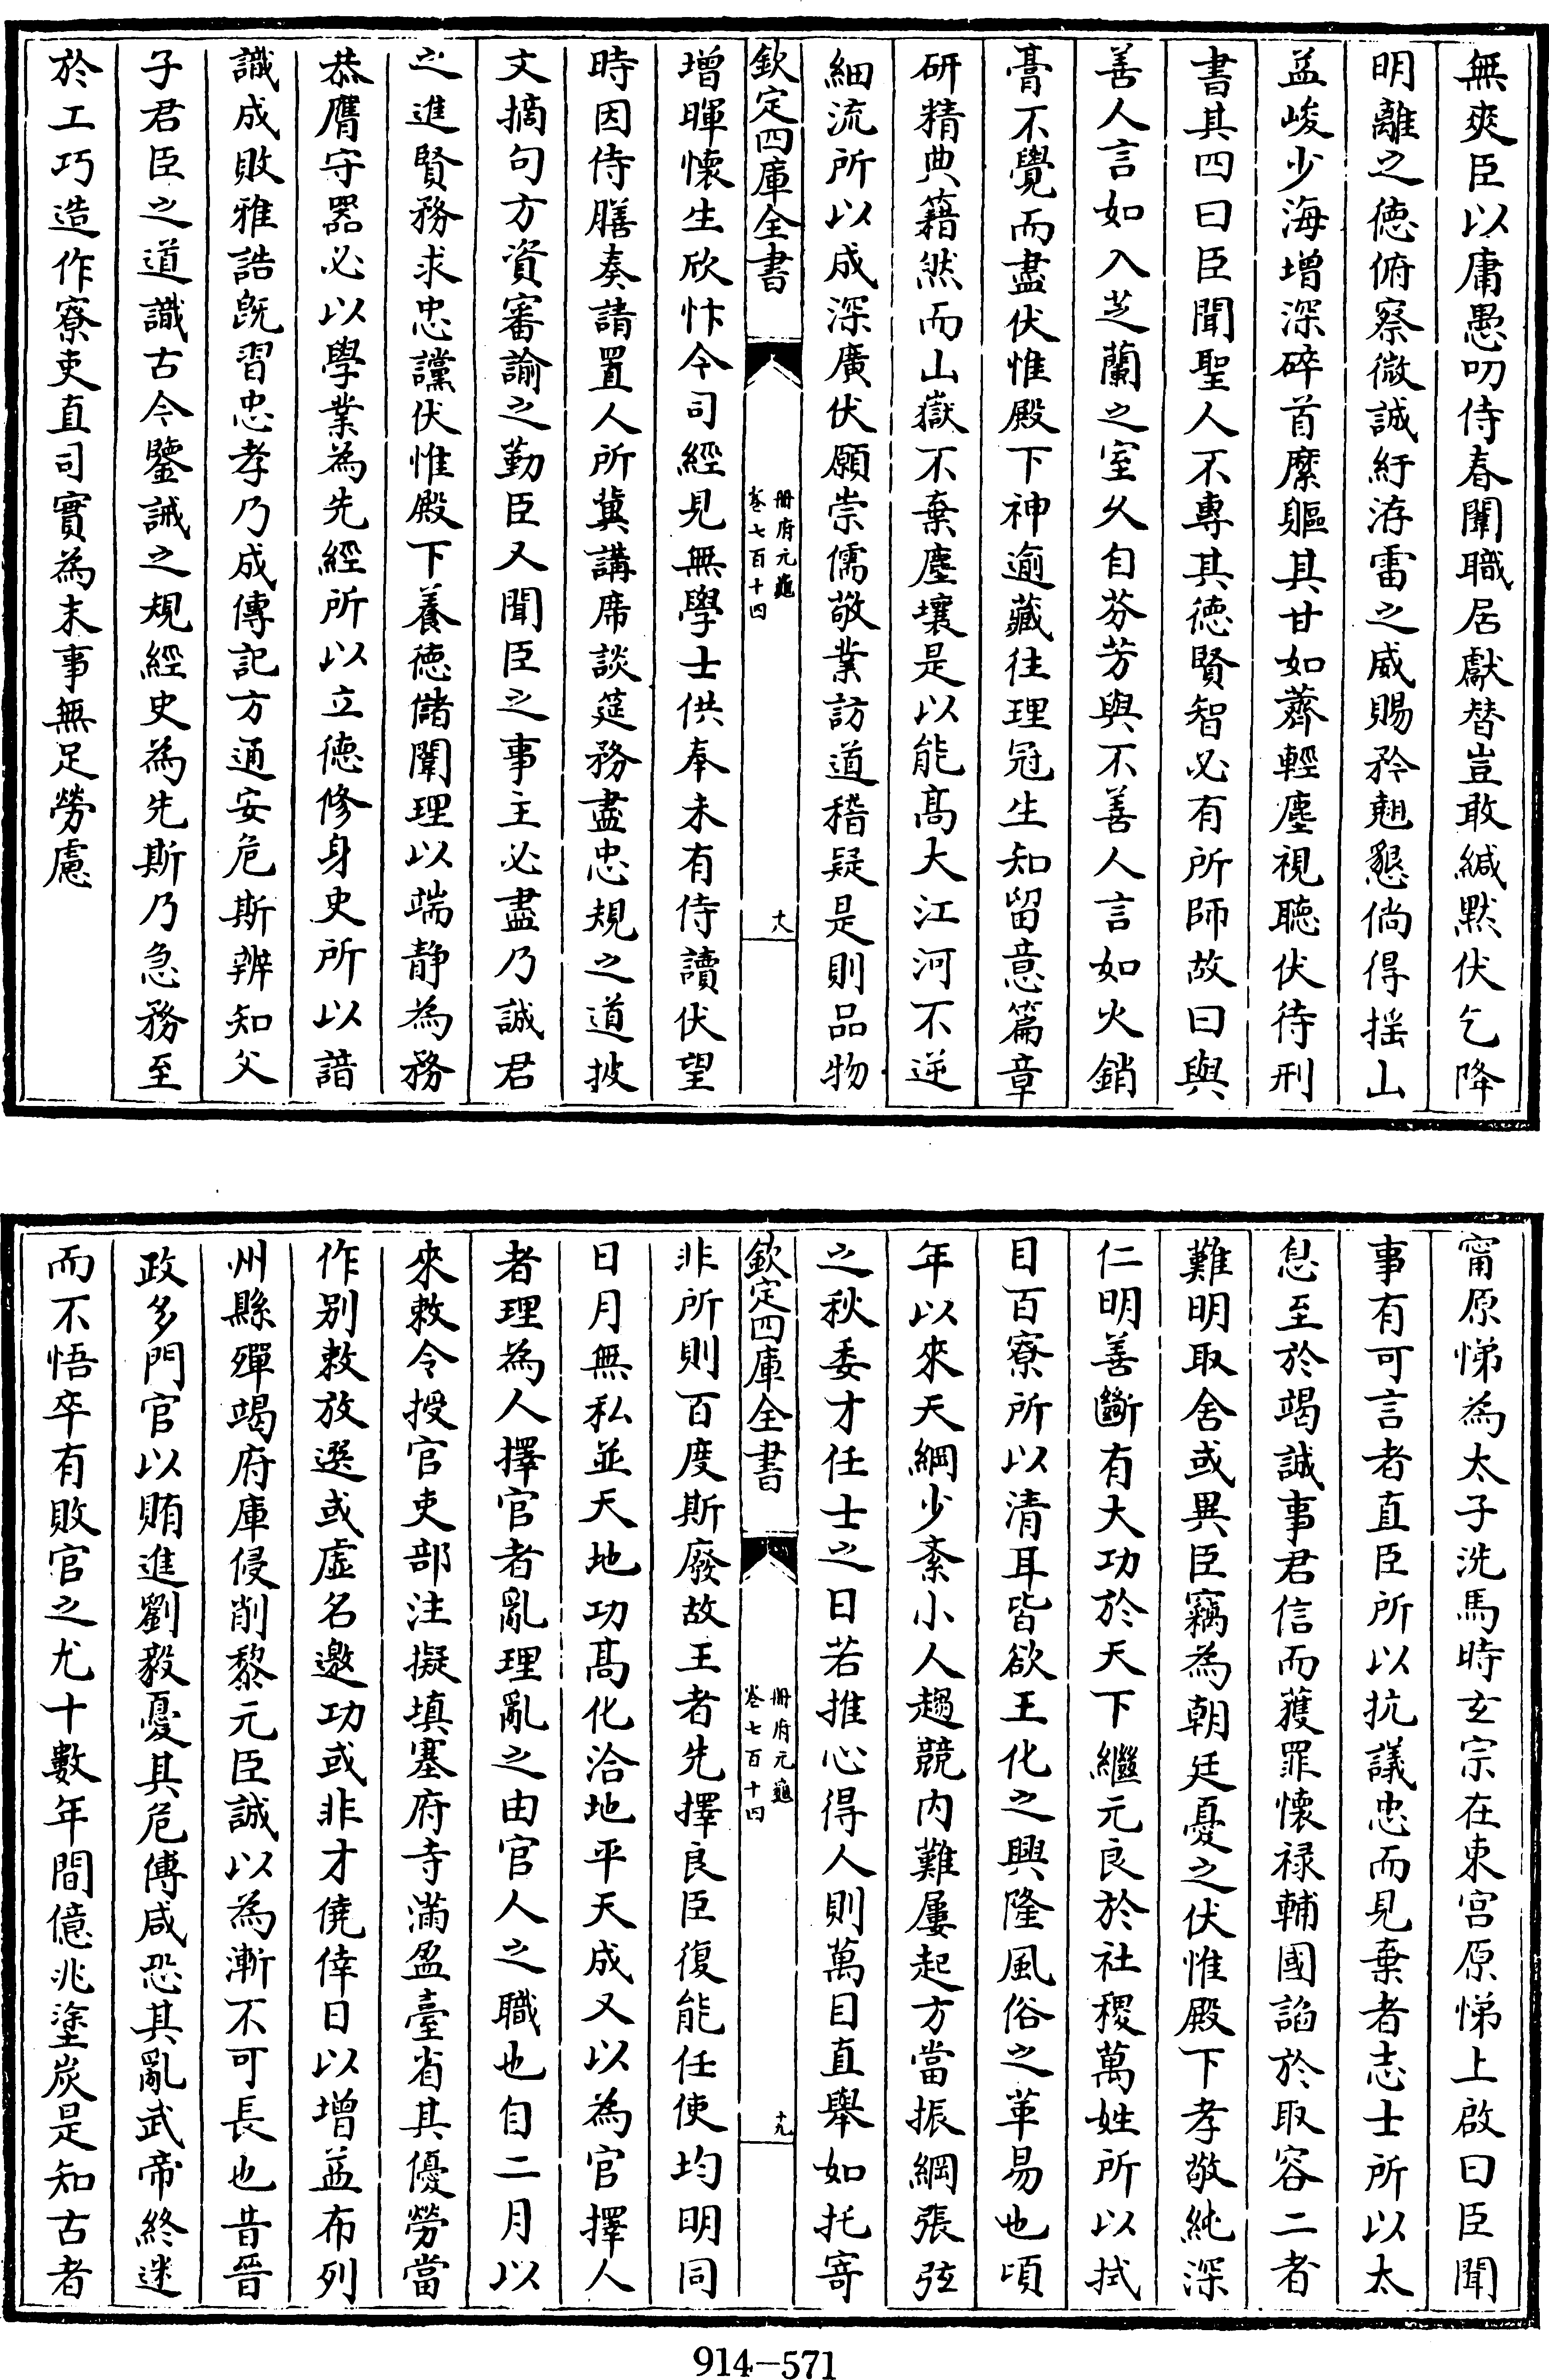 無爽臣以庸愚叨侍春闈職居獻替豈敢緘黙伏乞降
明離之徳俯察微誠紆洊雷之威賜矜翹懇倘得揺山
益峻少海增深碎首縻軀其甘如薺輕塵視聽伏待刑
書其四曰臣聞聖人不專其徳賢智必有所師故曰與
善人言如入芝蘭之室久自芬芳與不善人言如火銷
膏不覺而盡伏惟殿下神逾藏往理冠生知留意篇章
研精典籍然而山嶽不棄塵壤是以能髙大江河不逆
細流所以成深廣伏願崇儒敬業訪道稽疑是則品物
欽定四庫全書
册府元龜
卷七百十四
十八
增暉懷生欣忭今司經見無學士供奉未有侍讀伏望
時因侍膳奏請置人所兾講席談筵務盡忠規之道披
文摘句方資審諭之勤臣又聞臣之事主必盡乃誠君
之進賢務求忠讜伏惟殿下養徳儲闈理以端静為務
恭膺守器必以學業為先經所以立徳修身史所以諳
識成敗雅誥旣習忠孝乃成傳記方通安危斯辨知父
子君臣之道識古今鑒誡之規經史為先斯乃急務至
於工巧造作寮吏直司實為末事無足勞慮
甯原悌為太子洗馬時玄宗在東宫原悌上啟曰臣聞
事有可言者直臣所以抗議忠而見棄者志士所以太
息至於竭誠事君信而獲罪懷禄輔國諂於取容二者
難明取舍或異臣竊為朝廷憂之伏惟殿下孝敬純深
仁明善斷有大功於天下繼元良於社稷萬姓所以拭
目百寮所以清耳皆欲王化之興隆風俗之革易也頃
年以來天綱少紊小人趨競内難屢起方當振綱張弦
之秋委才任士之日若推心得人則萬目直舉如托寄
欽定四庫全書
册府元龜
卷七百十四
十九
非所則百度斯廢故王者先擇良臣復能任使均明同
日月無私並天地功髙化洽地平天成又以為官擇人
者理為人擇官者亂理亂之由官人之職也自二月以
來敕令授官吏部注擬填塞府寺滿盈臺省其優勞當
作别敕放選或虚名邀功或非才僥倖日以增益布列
州縣殫竭府庫侵削黎元臣誠以為漸不可長也昔晉
政多門官以賄進劉毅憂其危傅咸恐其亂武帝終迷
而不悟卒有敗官之尤十數年間億兆塗炭是知古者
914-571